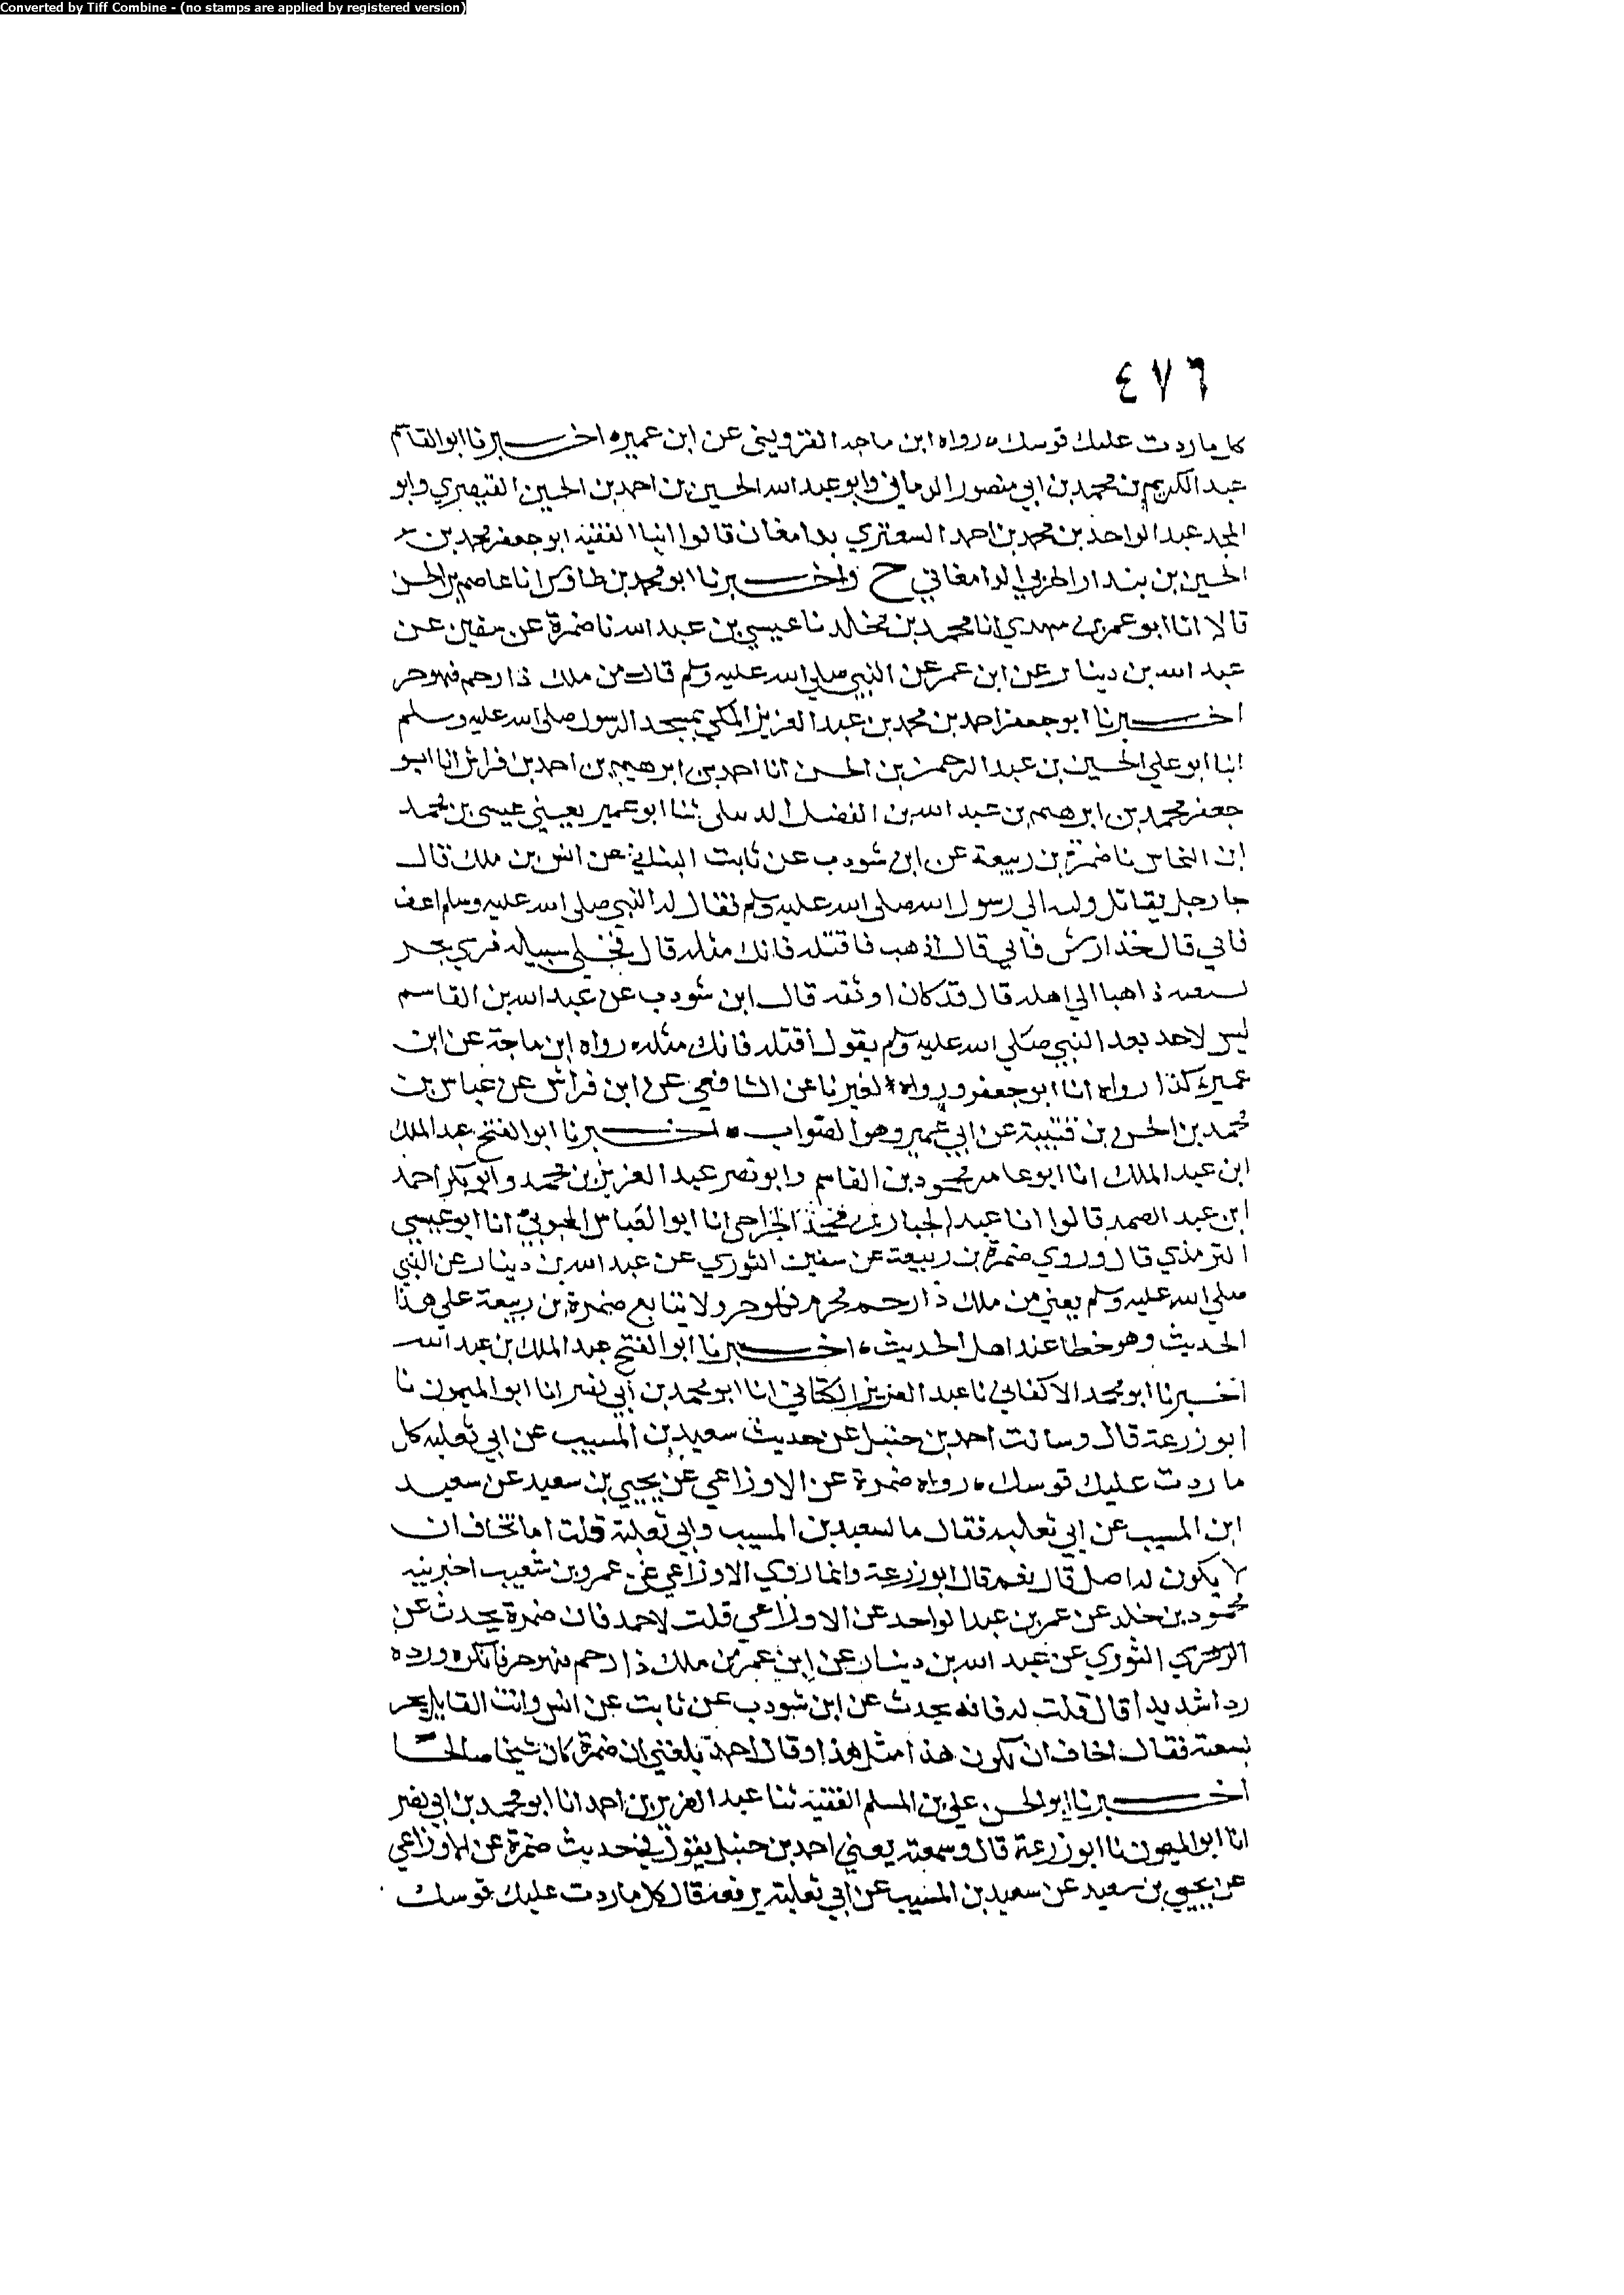 Converted by Tiff Combine - (no stamps are applied by registered version)
٤٧٦
كل ما ردت عليك قوسك ه رواه ابن ماجه القزويني عن ابن عمير ه اخبرنا ابو القاسم
عبد الكريم بن محمد بن ابي منصور الرماني وابو عبد الله الحسين بن احمد بن الحسين القيصري وابو
المجد عبد الواحد بن محمد بن احمد السعتري بدامغان قالوا انبا الفقيه ابو جعفر محمد بن
الحسين بن بندار الدامغاني ح واخبرنا ابو محمد بن طاوس انا عاصم بن الحسن
قالا انا ابو عمر بن مهدي انا محمد بن مخلد نا عيسي بن عبد الله نا ضمرة عن سفين عن
عبد الله بن دينار عن ابن عمر عن النبي صلي الله عليه وسلم قال من ملك ذا رحم فهو حر
اخبرنا ابو جعفر احمد بن محمد بن عبد العزيز المكي بمسجد الرسول صلى الله عليه وسلم
انبا ابو علي الحسين بن عبد الرحمن بن الحسن انا احمد بن ابرهيم بن احمد بن فراس انا ابو
جعفر محمد بن ابرهيم بن عبد الله بن الفضل الدسلى ثنا ابو عمير يعني عيسى بن محمد
ابن النحاس نا ضمرة بن ربيعة عن ابن شودب عن ثابت البناني عن انس بن ملك قال
جا رجل بقاتل وليه الى رسول الله صلى الله عليه وسلم فقال له النبي صلى الله عليه وسلم اعف
فابي قال خذ ارش فابي قال اذهب فاقتله فانك مثله قال فخلي سبيله فري يجر
لسعه ذاهبا الي اهله قال قد كان اوثقه قال ابن شودب عن عبد الله بن القاسم
ليس لاحد بعد النبي صلي الله عليه وسلم يقول اقتله فانك مثله ه رواه ابن ماجة عن ابن
عمير كذا رواه انا ابو جعفر ورواه لغيرنا عن الشافعي عن ابن فراس عن عباس بن
محمد بن الحسن بن قتيبة عن ابي عمير وهو الصواب ه اخبرنا ابو الفتح عبد الملك
ابن عبد الملك انا ابو عامر محمود بن القاسم وابو نصر عبد العزيز بن محمد وابو بكر احمد
ابن عبد الصمد قالوا انا عبد الجبار بن محمد الجراحي انا ابو العباس المحبوبي انا ابو عيسي
الترمذي قال وروي ضمرة بن ربيعة عن سفين الثوري عن عبد الله بن دينار عن النبي
صلي الله عليه وسلم يعني من ملك ذا رحم محرم فهو حر ولا يتابع ضمرة بن ربيعة علي هذا
الحديث وهو خطا عند اهل الحديث ه اخبرنا ابو الفتح عبد الملك بن عبد الله
اخبرنا ابو محمد الاكفاني نا عبد العزيز الكتاني انا ابو محمد بن ابي نصر انا ابو الميمون نا
ابو زرعة قال وسالت احمد بن حنبل عن حديث سعيد بن المسيب عن ابي ثعلبه كل
ما ردت عليك قوسك ه رواه ضمرة عن الاوزاعي عن يحيي بن سعيد عن سعيد
ابن المسيب عن ابي ثعلبه فقال ما لسعيد بن المسيب وابي ثعلبة قلت اما تخاف ان
لا يكون له اصل قال نعم قال ابو زرعة وانما روي الاوزاعي عن عمرو بن شعيب اخبرنيه
محمود بن خلد عن عمر بن عبد الواحد عن الاوزاعي قلت لاحمد فان ضمرة يحدث عن
الثوري عن عبد الله بن دينار عن ابن عمر من ملك ذا رحم فهو حر فانكره ورده
ردا شديدا قال قلت له فانه يحدث عن ابن شودب عن ثابت عن انس وانت القايل يجر
نسعته فقال اخاف ان يكون هذا مثل هذا وقال احمد بلغني ان ضمرة كان شيخا صالحا
اخبرنا ابو الحسن علي بن المسلم الفقيه ثنا عبد العزيز بن احمد انا ابو محمد بن ابي نصر
انا ابو الميمون نا ابو زرعة قال وسمعته يعني احمد بن حنبل يقول في حديث ضمرة عن الاوزاعي
عن يحيي بن سعيد عن سعيد بن المسيب عن ابي ثعلبة يرفعه قال كل ما ردت عليك قوسك